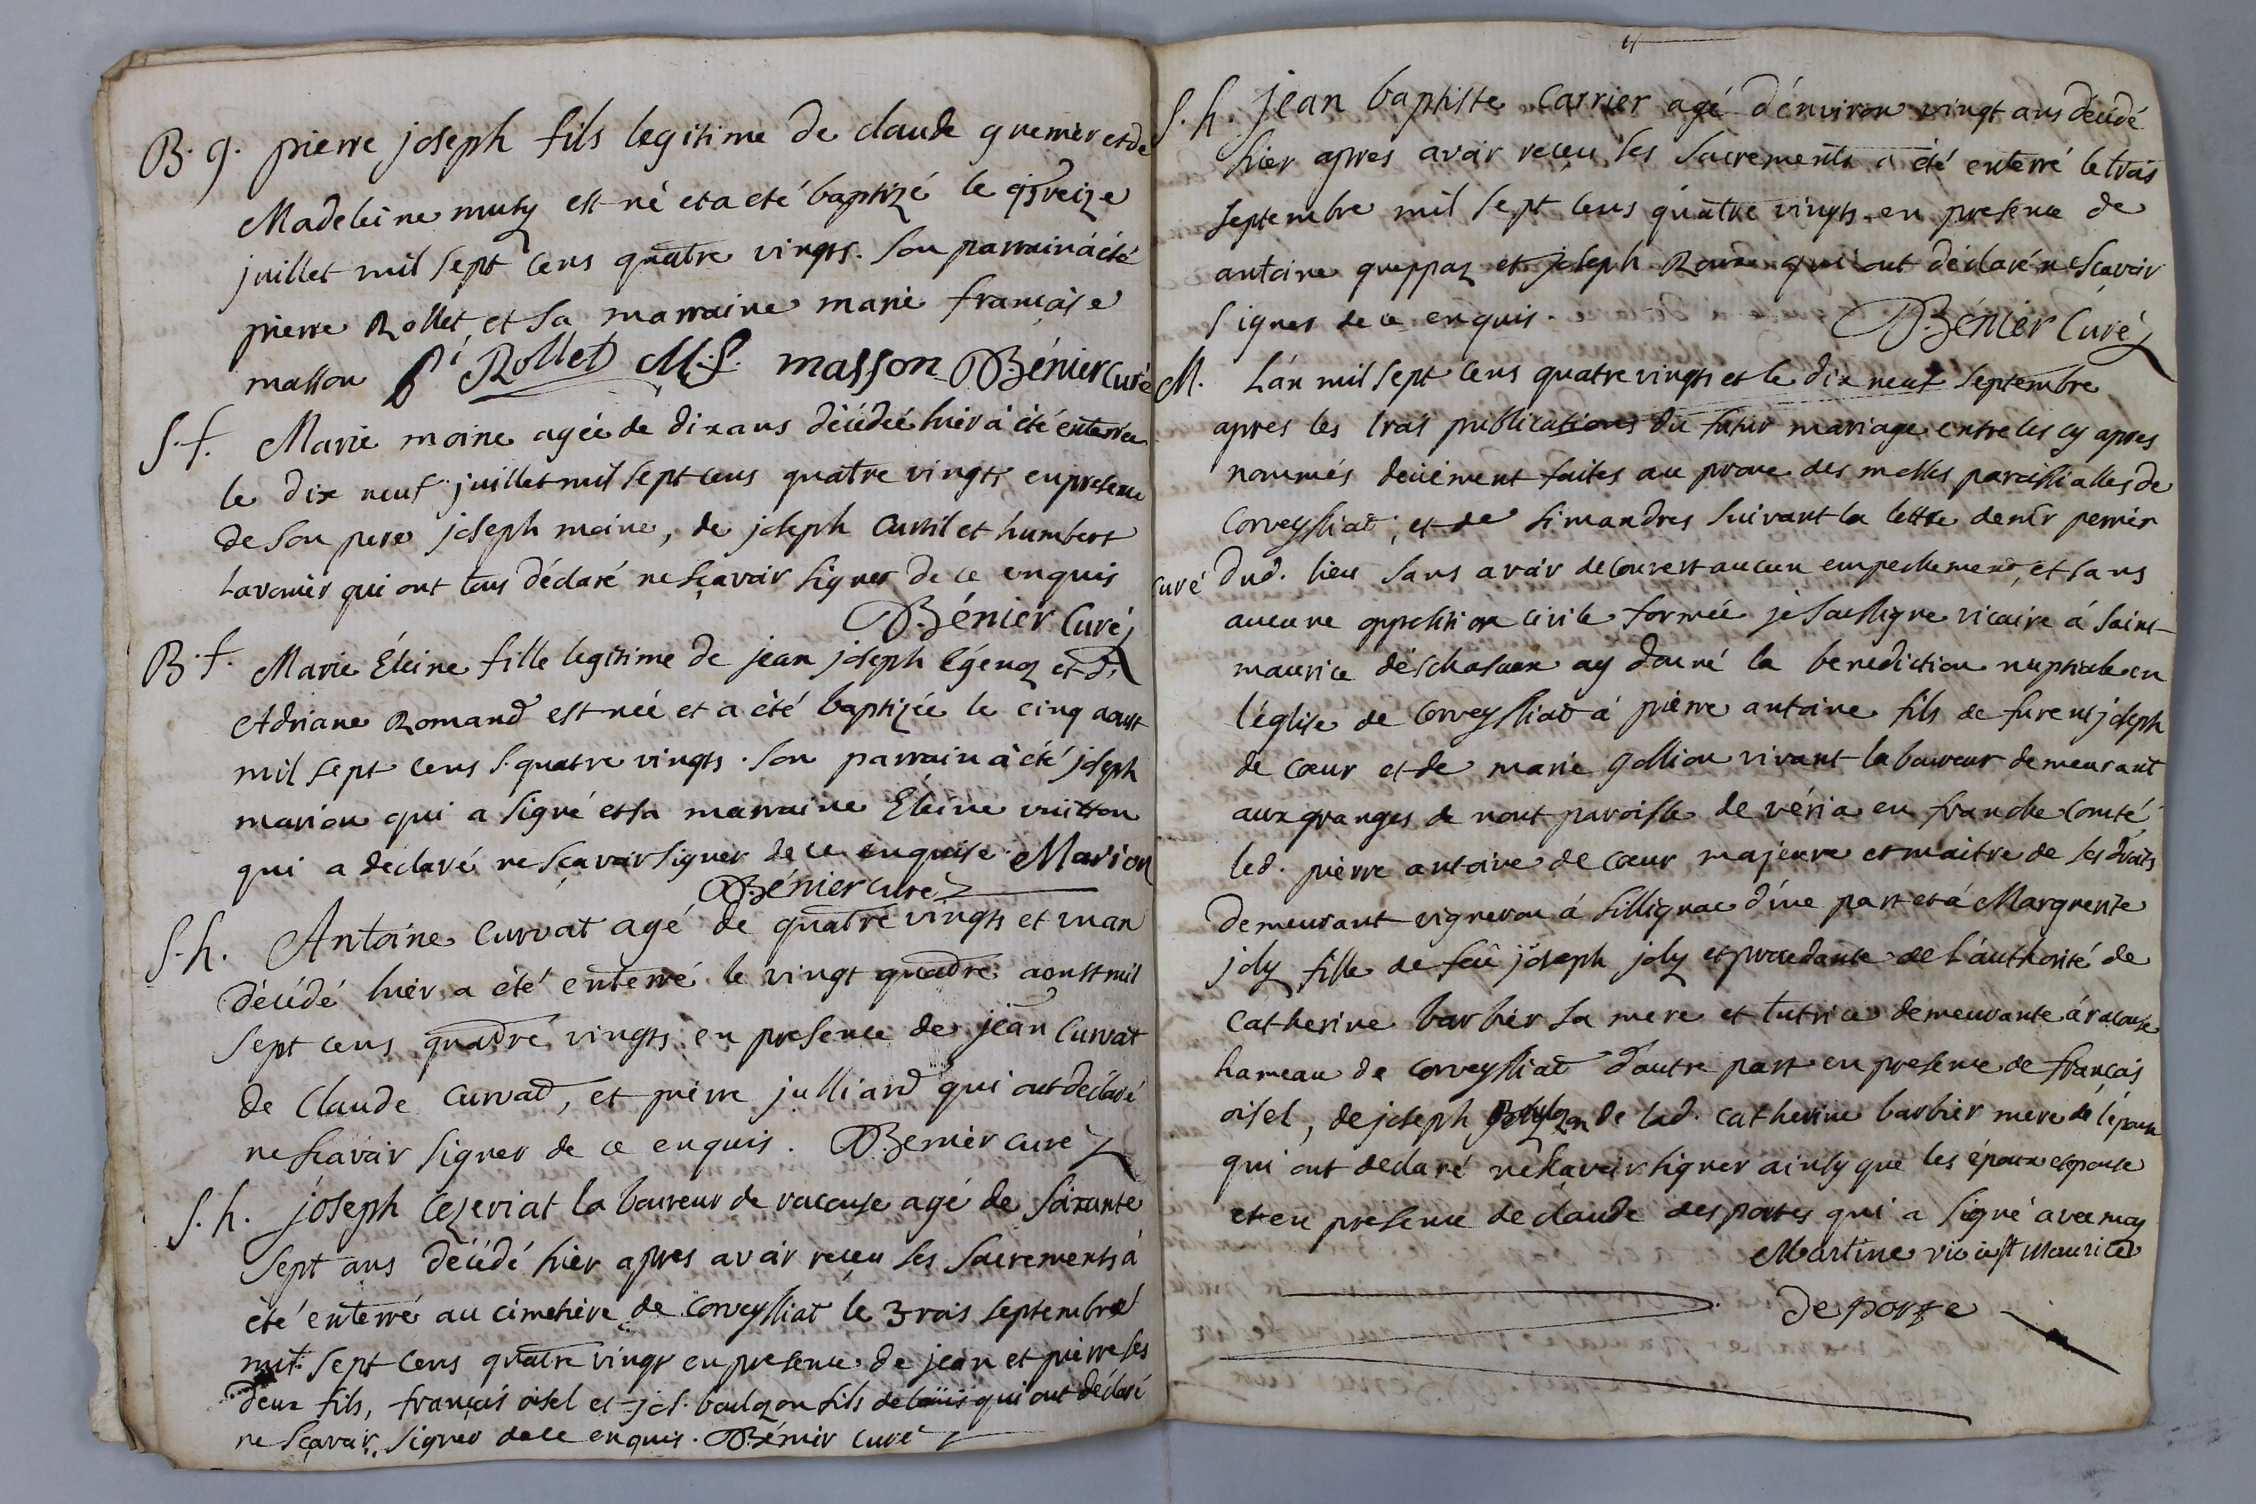 B. g. pierre joseph fils legitime de claude gremier et de
Madeleine muty est né et a eté baptizé le treize
juillet mil sept cens quatre vingts. Son parrain a été
pierre Rollet, et sa marraine marie françaïse
masson Pi Rollet M: f. masson Bénier Curé
S. f. Marie moine agée de dix ans décédée hier a été enterrée
le dix neuf juillet mil sept cens quatre vingts en presence
de son pere joseph moine, de joseph Curtil et humbert
Lavenir qui ont tous déclaré ne sçavoir signer de ce enquis
Bénier Curé
B. f. Marie Éleine fille legitime de jean joseph Egenoz et d'
Adriane Romand est née et a été baptizée le cinq aoust
mil sept cens quatre vingts. son parrain a été joseph
marion qui a signé et sa marraine Eleine vuitton
qui a déclaré ne sçavoir signer de ce enquise Marion
Bénier Curé
S. h. Antoine Curvat agé de quatre vingts et un an
décédé hier a été enterré le vingt quatre aoust mil
Sept cens quatre vingts en presence de jean Curvat
de Claude Curvat, et pierre julliard qui ont déclaré
ne sçavoir signer de ce enquis. Benier curé
S. h. joseph Cezeriat laboureur de racouse agé de soixante
Sept ans décédé hier apres avoir reçeu ses sacrements a
été enterré au cimetiere de Corveyssiat le 3rois septembre
mil sept cens quatre vingt en presence de jean et pierre ses
deux fils, françois oisel et jos. boulezon fils de loüis qui ont déclaré
ne Sçavoir signer de ce enquis. Bénier curé
S. h. jean baptiste Carrier agé d'énviron vingt ans décédé
hier apres avoir reçeu ses Sacrements a été enterré le trois
septembre mil sept cens quatre vingts en presence de
antoine greppaz et joseph Roux qui ont déclaré ne sçavoir
signer de ce enquis. Bénier Curé
M. L'an mil sept cens quatre vingts et le dix neuf septembre
apres les trois publications du futur mariage entre les cy apres
nommés deüement faites au prone des messes paroissialles de
Corveyssiat, et de simandres suivant la lettre de mr perrier
curé dud. lieu sans avoir decouvert aucun empechement, et sans
aucune opposition civile formée je soussigné vicaire á saint-
maurice d'éschasaux ay donné la benediction nuptiale en
l'église de Corveyssiat á pierre antoine fils de furent joseph
de cœur et de marie gollion vivant laboureur demeurant
aux granges de nont paroisse de véria en franche comté,
led. pierre antoine de cœur majeure et maitre de ses droits
demeurant vigneron á sillignac d'une part et á Margueritte
joly fille de feû joseph joly et procedante de l'authorité de
Catherine barbier sa mere et tutrice demeurante á racouse
hameau de Corveyssiat d'autre part en presence de françois
oisel, de joseph de lad. catherine barbier mere de l'épouse
qui ont declaré ne sçavoir signer ainsy que les époux et épouse
et en presence de claude desportes qui a signé avec moy
Martine vic. á st maurice
deporte